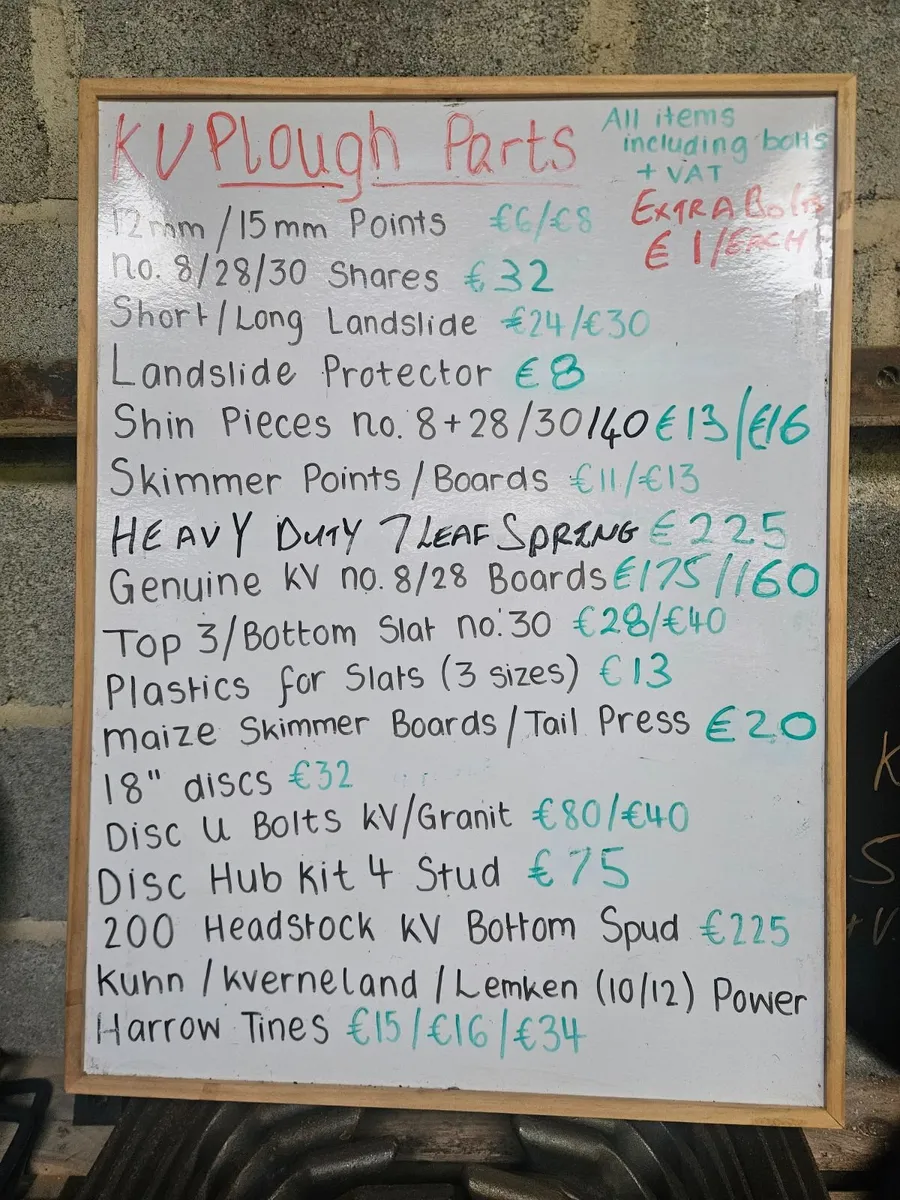 KV Plough Parts
All items
including bolts
+ VAT
EXTRA Bolts
€ 1/EACH
12mm/15mm Points €6/€8
no. 8/28/30 Shares €32
Short/Long Landslide €24/€30
Landslide Protector €8
Shin Pieces no. 8+28/30/40 €13/€16
Skimmer Points/Boards €11/€13
HEAVY DUTY 7 LEAF SPRING €225
Genuine KV no. 8/28 Boards €175/160
Top 3/Bottom Slat no. 30 €28/€40
Plastics for Slats (3 sizes) €13
Maize Skimmer Boards/Tail Press €20
18" discs €32
Disc U Bolts KV/Granit €80/€40
Disc Hub Kit 4 Stud €75
200 Headstock KV Bottom Spud €225
Kuhn/Kverneland/Lemken (10/12) Power
Harrow Tines €15/€16/€34
K
S
+V